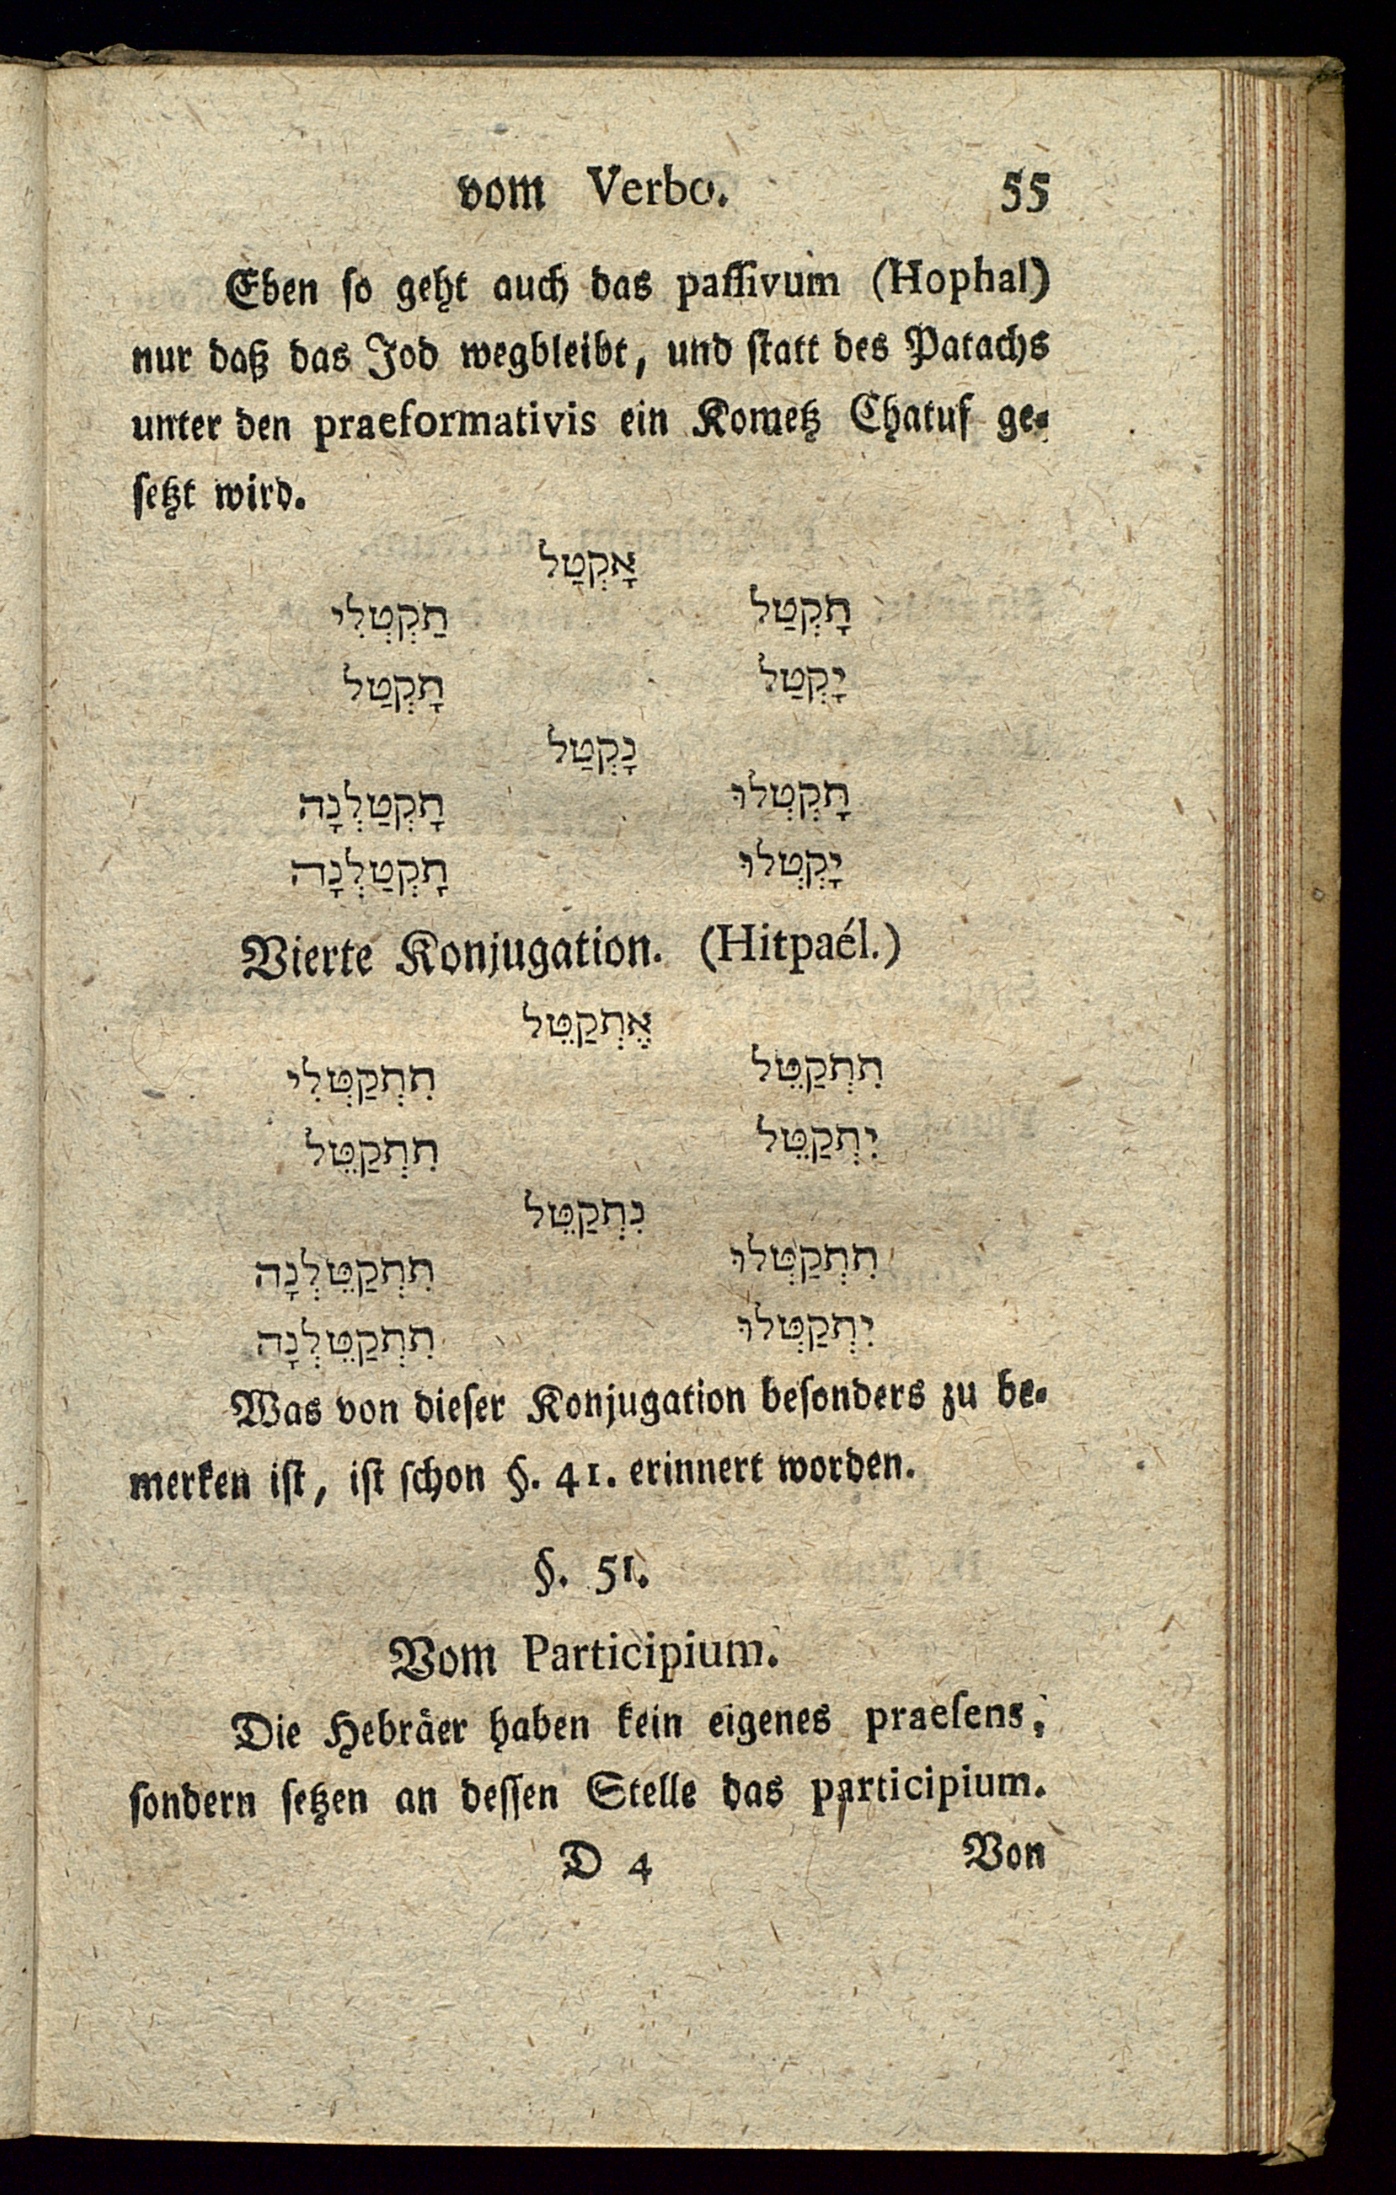 vom Verbo. 55
Eben so geht auch das passivum (Hophal)
nur daß das Jod wegbleibt, und statt des Patachs
unter den praeformativis ein Kometz Chatuf ge-
setzt wird.
אָקְטַל
תָקְטַל תַקְטְלִי
יָקְטַל תָקְטַל
נָקְטַל
תָקְטְלוּ תָקְטַלְנָה
יָקְטְלוּ תָקְטַלְנָה
Vierte Konjugation. (Hitpaél.)
אֶתְקַטֵּל
תִתְקַטֵּל תִתְקַטְּלִי
יִתְקַטֵּל תִתְקַטֵּל
נִתְקַטֵּל
תִתְקַטְּלוּ תִתְקַטֵּלְנָה
יִתְקַטְּלוּ תִתְקַטֵּלְנָה
Was von dieser Konjugation besonders zu be-
merken ist, ist schon §. 41. erinnert worden.
§. 51.
Vom Participium.
Die Hebräer haben kein eigenes praesens,
sondern setzen an dessen Stelle das participium.
D 4 Von